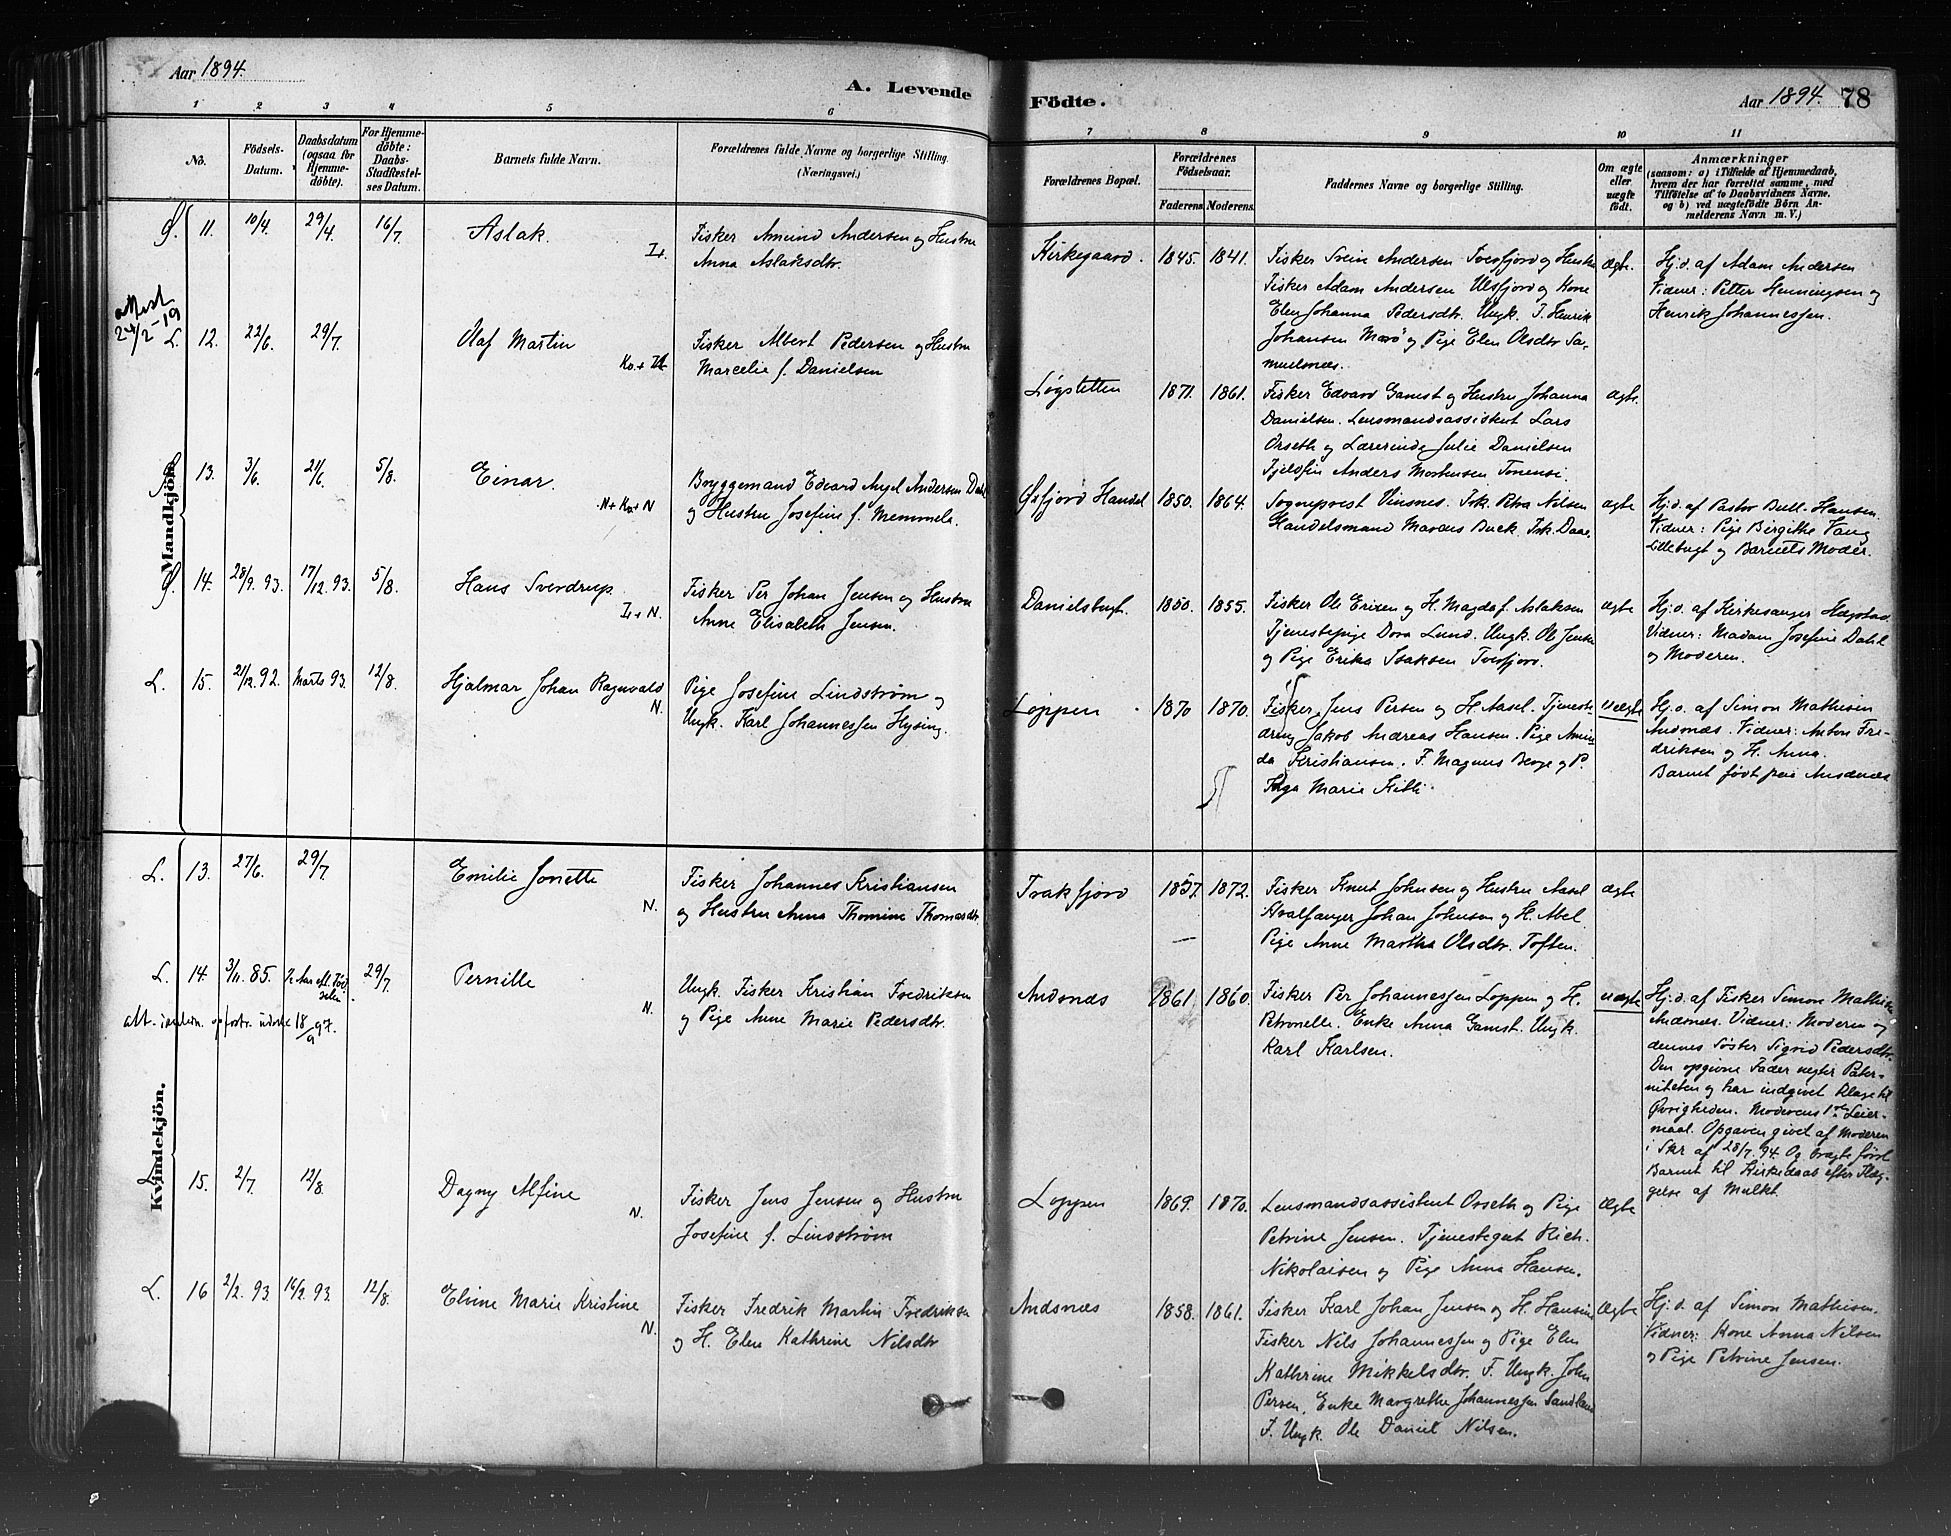 Aar 1894.
A. Levende
1 2 3 4 5 6
No.
Födsels-Datum.
Daabsdatum (ogsaa for Hjemme-döbte).
For Hjemme-döbte: Daabs-Stadfæstel-ses Datum.
Barnets fulde Navn.
Forældrenes fulde Navne og borgerlige Stilling.
(Næringsvei.)
Ø. 11. 10/4. 29/4. 16/7. Aslak.
Fisker Amund Andersen og Hustru
Anna Aslaksdtr.
attest
24/2-19
L. 12. 22/6. 29/7. Olaf Martin
Fisker Albert Pedersen og Hustru
Marcelie f. Danielsen
Mandkjön.
13. 3/6. 21/6. 5/8. Einar.
N + Kv + N
Bryggemand Edvard Angel Andersen Dahl
og Hustru Josefine f. Memmela.
Ø. 14. 28/9. 93. 17/12. 93. 5/8. Hans Sverdrup.
L + N.
Fisker Per Johan Jensen og Hustru
Anne Elisabeth Jensen.
L. 15. 21/12. 92. Marts 93. 12/8. Hjalmar Johan Ragnvald
N.
Pige Josefine Lindstrøm og
Ungk. Karl Johannessen Hysing.
L. 13. 27/6. 29/7. Emilie Jonette
N.
Fisker Johannes Kristiansen
og Hustru Anna Thomine Thomasdtr.
L. 14. 3/11. 85. 29/7. Pernille
N.
Ungk. Fisker Kristian Fredriksen
og Pige Anne Marie Pedersdtr.
18/9 97.
Kvindekjön.
15. 2/7. 12/8. Dagny Alfine
N.
Fisker Jens Jensen og Hustru
Josefine f. Lindstrøm
L. 16 2/2. 93 16/2. 93. 12/8. Elvine Marie Kristine
N.
Fisker Fredrik Martin Fredriksen
og H. Elen Kathrine Nilsdtr
Födte.
Aar 1894. 78
7 8 9 10 11
Forældrenes Bopæl.
Forældrenes Födselsaar.
Faderens. Moderens.
Faddernes Navne og borgerlige Stilling.
Om ægte eller uægte födt.
Anmærkninger
(saasom: a) i Tilfælde af Hjemmedaab,
hvem der har forrettet samme, med
Tilföielse af to Daabsvidners Navne,
og b) ved uægtefödte Börn An-
melderens Navn m. V.)
Kirkegaard. 1845. 1841.
Fisker Svein Andersen Tverfjord og Hustru
Fisker Adam Andersen Ulsfjord og Kone
Elen Johanna Pedersdtr. Ungk. J. Henrik
Johansen Marø og Pige Elen Olsdtr Sa-
muelsnes.
Ægte.
Hj.d. af Adam Andersen
Vidner: Petter Henningsen og
Henrik Johannessen.
Løgstetten 1871. 1861.
Fisker Edvard Gamst og Hustru Johanna
Danielsen. Lensmandsassistent Lars
Orseth og Lærerinde Julie Danielsen
Fjeldfin Anders Mortensen Tonensi.
ægte.
Øxfjord Handel 1850. 1864.
Sogneprest Vinsnes. Frk. Petra Nilsen
Handelsmand Marcus Buck. Frk. Daae.
ægte
Hj.d. af Pastor Bull-Hansen.
Vidner: Pige Birgithe Vang
Lillebugt og Barnets Moder.
Danielsbugt. 1850. 1855.
Fisker Ole Erixen og H. Magda f. Aslaksen
Tjenestepige Dora Lund. Ungk. Ole Jensen
og Pige Erika Isaksen Tverfjord.
ægte
Hj.d. af Kirkesanger Hegstad.
Vidner: Madam Josefine Dahl
og Moderen.
Loppen 1870 1870.
Fisker Jens Persen og H. Aasel. Tjeneste-
dreng Jakob Andreas Hansen. Pige Amun-
da Kristiansen. F. Magnus Berge og P.
Inga Marie Kitti.
uægte
Hj.d. af Simon Mathisen
Andsnæs. Vidner: Anton Fre-
driksen og H. Anna.
Barnet født paa Andsnæs
Trakfjord 1857. 1872.
Fisker Knut Johnsen og Hustru Aasel
Hvalfanger Johan Johnsen og H. Abel
Pige Anne Martha Olsdtr. Toften.
ægte
Andsnæs 1861. 1860.
Fisker Per Johannessen Loppen og H.
Petronelle. Enke Anna Gamst. Ungk.
Karl Karlsen.
uægte
Hj.d. af Fisker Simon Mathisen
Andsnæs. Vidner: Moderen og
dennes Søster Sigrid Pedersdtr.
Den opgivne Fader negter Pater-
niteten og har indgivet Klage til
Øvrigheden. Moderens 1ste Leier-
maal. Opgaven givet af Moderen
i Skr af 28/7. 94. Og bragte først
Barnet til Kirkedaab efter Ilæg-
gelse af Mulkt.
Loppen 1869. 1870.
Lensmandsassistent Orseth og Pige
Petrine Jensen. Tjenestegut Rich.
Nikolaisen og Pige Anna Hansen.
Ægte
Andsnæs 1858. 1861.
Fisker Karl Johan Jensen og H. Hansine
Fisker Nils Johannessen og Pige Elen
Kathrine Mikkelsdtr. F. Ungk. John
Persen, Enke Margrethe Johannessen Sandland
F. Ungk. Ole Daniel Nilsen.
Ægte
Hj.d. af Simon Mathisen.
Vidner: Kone Anna Nilsen
og Pige Petrine Jensen.